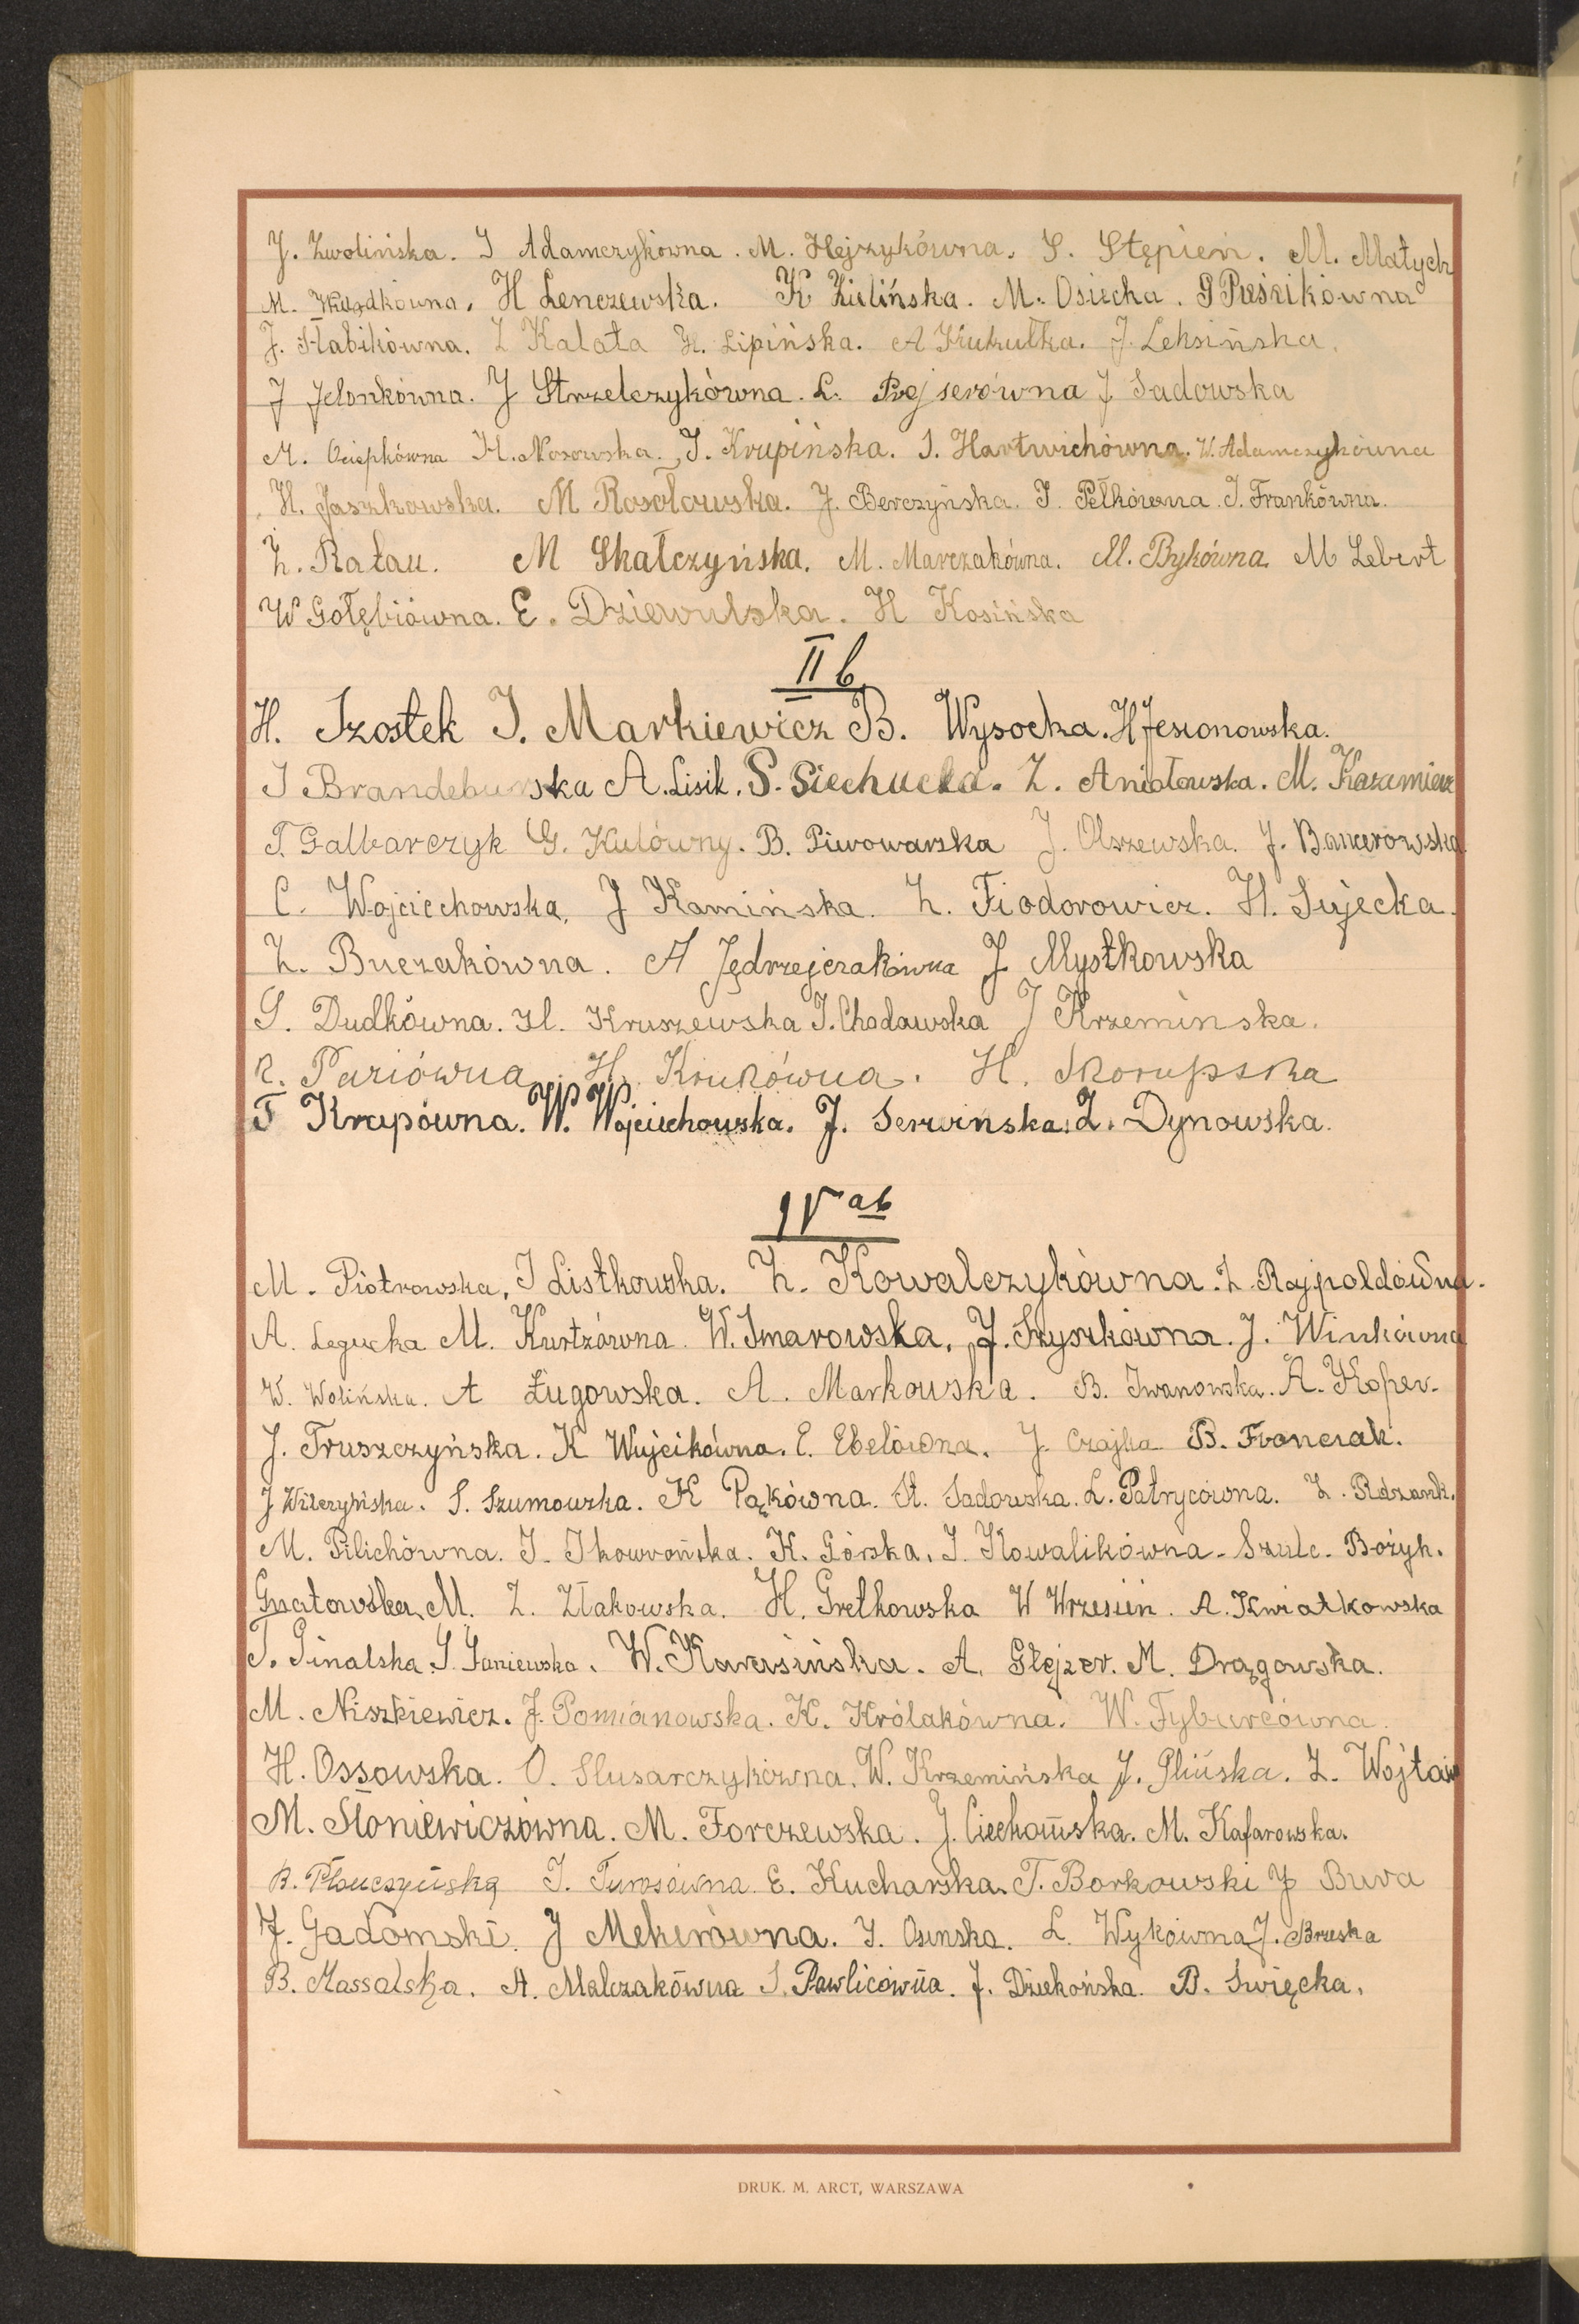 J. Zwolińska. I Adamczykówna. M. Hejzykówna. S. Stępień. M. Małych
M. H Lenczewska. K Zielińska. M. Osiecka. G Pieśzikówna
J. Słabikówna. Z Kalata H. Lipińska. A Kukułka. J. Leksińska.
J Jelonkówna. J Strzelczykówna. L. Prejserówna J Sadowska
M. Ociepkówna H. Nosowska. J. Krupińska. I. Hartwichówna. W. Adamczykówna
H. Jaszkowska. M Rosołowska. J. Berczyńska. I. Pełkówna. I. Frankówna.
Z. Ratau. M Skałczyńska. M. Marczakówna. M. Bykówna. M Lebert
W Gołębiówna. E. Dziewulska. H Kosińska
II b
H. Szostek I. Markiewicz B. Wysocka. H Jesionowska.
I Brandeburska A. Lisik. S. Siechucka. Z. Aniołowska. M. Kazimierz
T. Galbarczyk G. Kulówny. B. Piwowarska J. Olszewska. J. Bancerowska
C. Wojciechowska, J Kamińska. Z. Fiodorowicz. H. Sujecka.
Z. Buczakówna. A Jędrzejczakówna J Mystkowska
G. Dudkówna. H. Kruszewska I. Chodawska J Krzemińska.
R. Paziówna. H. Krukówna. H. Skorupska
T Krupówna. W. Wojciechowska. J. Serwinska. Z. Dynowska.
IV ab
M. Piotrowska, I Listkowska. Z. Kowalczykówna. Z. Rajpoldówna.
A. Legucka M. Kurtzówna. W. Smarowska, J. Szyszkówna. J. Winkówna
W. Wolińska. A Ługowska. A. Markowska. B. Iwanowska. A. Koper.
J. Truszczyńska. K Wujcikówna. E. Ebelówna. J. Czajka B. Franczak.
J Wilczyńska. S. Szumowska. K Pąkówna. St. Sadowska. L. Patrycówna. Z. Rdzank.
M. Pilichówna. I. Skowrońska. K. Górska. I. Kowalikówna. Szulc. Bożyk.
Gnatowska M. Z. Złakowska. H. Gretkowska W Wrzesień. A. Kwiatkowska
T. Ginalska. S. Janiewska. W. Karasińska. A. Glejzer. M. Drągowska.
M. Niszkiewicz. J. Pomianowska. K. Królakówna. W. Tyburcówna.
H. Ossowska. O. Slusarczykówna. W. Krzemińska J. Glińska. Z. Wójtów
M. Słoniewiczówna. M. Forczewska. J. Ciechomska. M. Kafarowska.
B. Płouczyńska I. Turosówna E. Kucharska. T. Borkowski J Buva
J. Gadomski. J Mekerówna. I. Osinska. L. Wykówna J. Brzeska
B. Massalska. A. Malczakówna I. Pawlicówna. J. Dziekońska. B. Święcka.
DRUK. M. ARCT, WARSZAWA